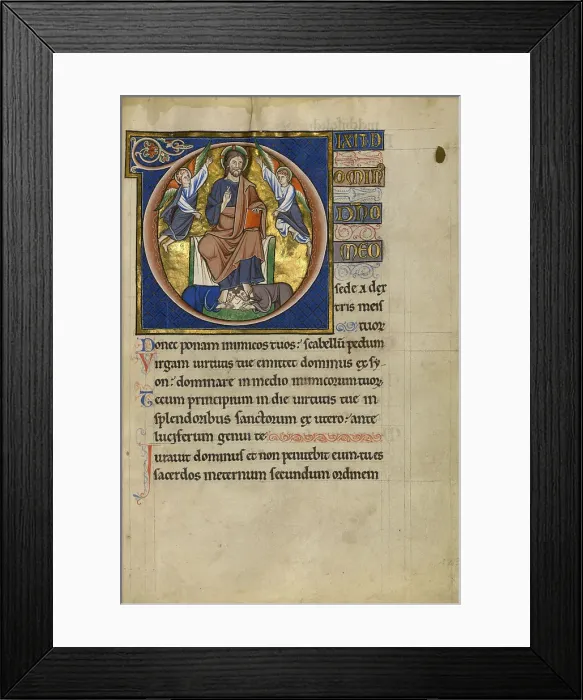 DIXIT D
OMIN
DNO
MEO
sede a dex
tris meis
Donec ponam inimicos tuos: scabellū pedum
tuor
Virgam uirtutis tue emittet dominus ex sy
on: dominare in medio inimicorum tuor
Tecum principium in die uirtutis tue in
splendoribus sanctorum ex utero: ante
luciferum genui te
Iurauit dominus et non penitebit eum: tu es
sacerdos ineternum secundum ordinem